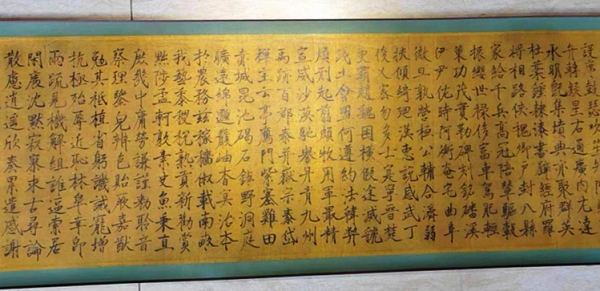 席鼓瑟吹笙升階納陛
弁轉疑星右通廣內左達
承明既集墳典亦聚群英
杜稾鍾隸漆書壁經府羅
將相路俠槐卿戶封八縣
家給千兵高冠陪輦驅轂
振纓世祿侈富車駕肥輕
策功茂實勒碑刻銘磻溪
伊尹佐時阿衡奄宅曲阜
微旦孰營桓公輔合濟弱
扶傾綺迴漢惠說感武丁
俊乂密勿多士寔寧晉楚
更霸趙魏困橫假途滅虢
踐土會盟何遵約法韓弊
煩刑起翦頗牧用軍最精
宣威沙漠馳譽丹青九州
禹跡百郡秦并嶽宗泰岱
禪主云亭雁門紫塞雞田
赤城昆池碣石鉅野洞庭
曠遠綿邈巖岫杳冥治本
於農務茲稼穡俶載南畝
我藝黍稷稅熟貢新勸賞
黜陟孟軻敦素史魚秉直
庶幾中庸勞謙謹敕聆音
察理鑒皃辨色貽厥嘉猷
勉其祗植省躬譏誡寵增
抗極殆辱近恥林皋幸即
兩疏見機解組誰逼索居
閑處沈默寂寥求古尋論
散慮逍遙欣奏累遣慼謝